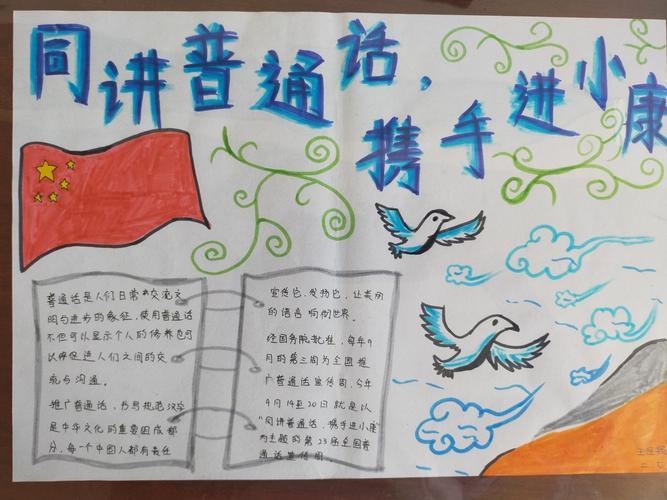 同讲普通话，
携手进小康
普通话是人们日常交流文
明与进步的象征，使用普通话
不但可以显示个人的修养也可
以够促进人们之间的交
流与沟通。
推广普通话，书写规范汉字
是中华文化的重要组成部
分，每一个中国人都有责任
宣传它，发扬它，让美丽
的语言响彻世界。
经国务院批准，每年9
月的第三周为全国推
广普通话宣传周，今年
9月14至20日就是以
“同讲普通话，携手进小康”
为主题的第23届全国普
通话宣传周。